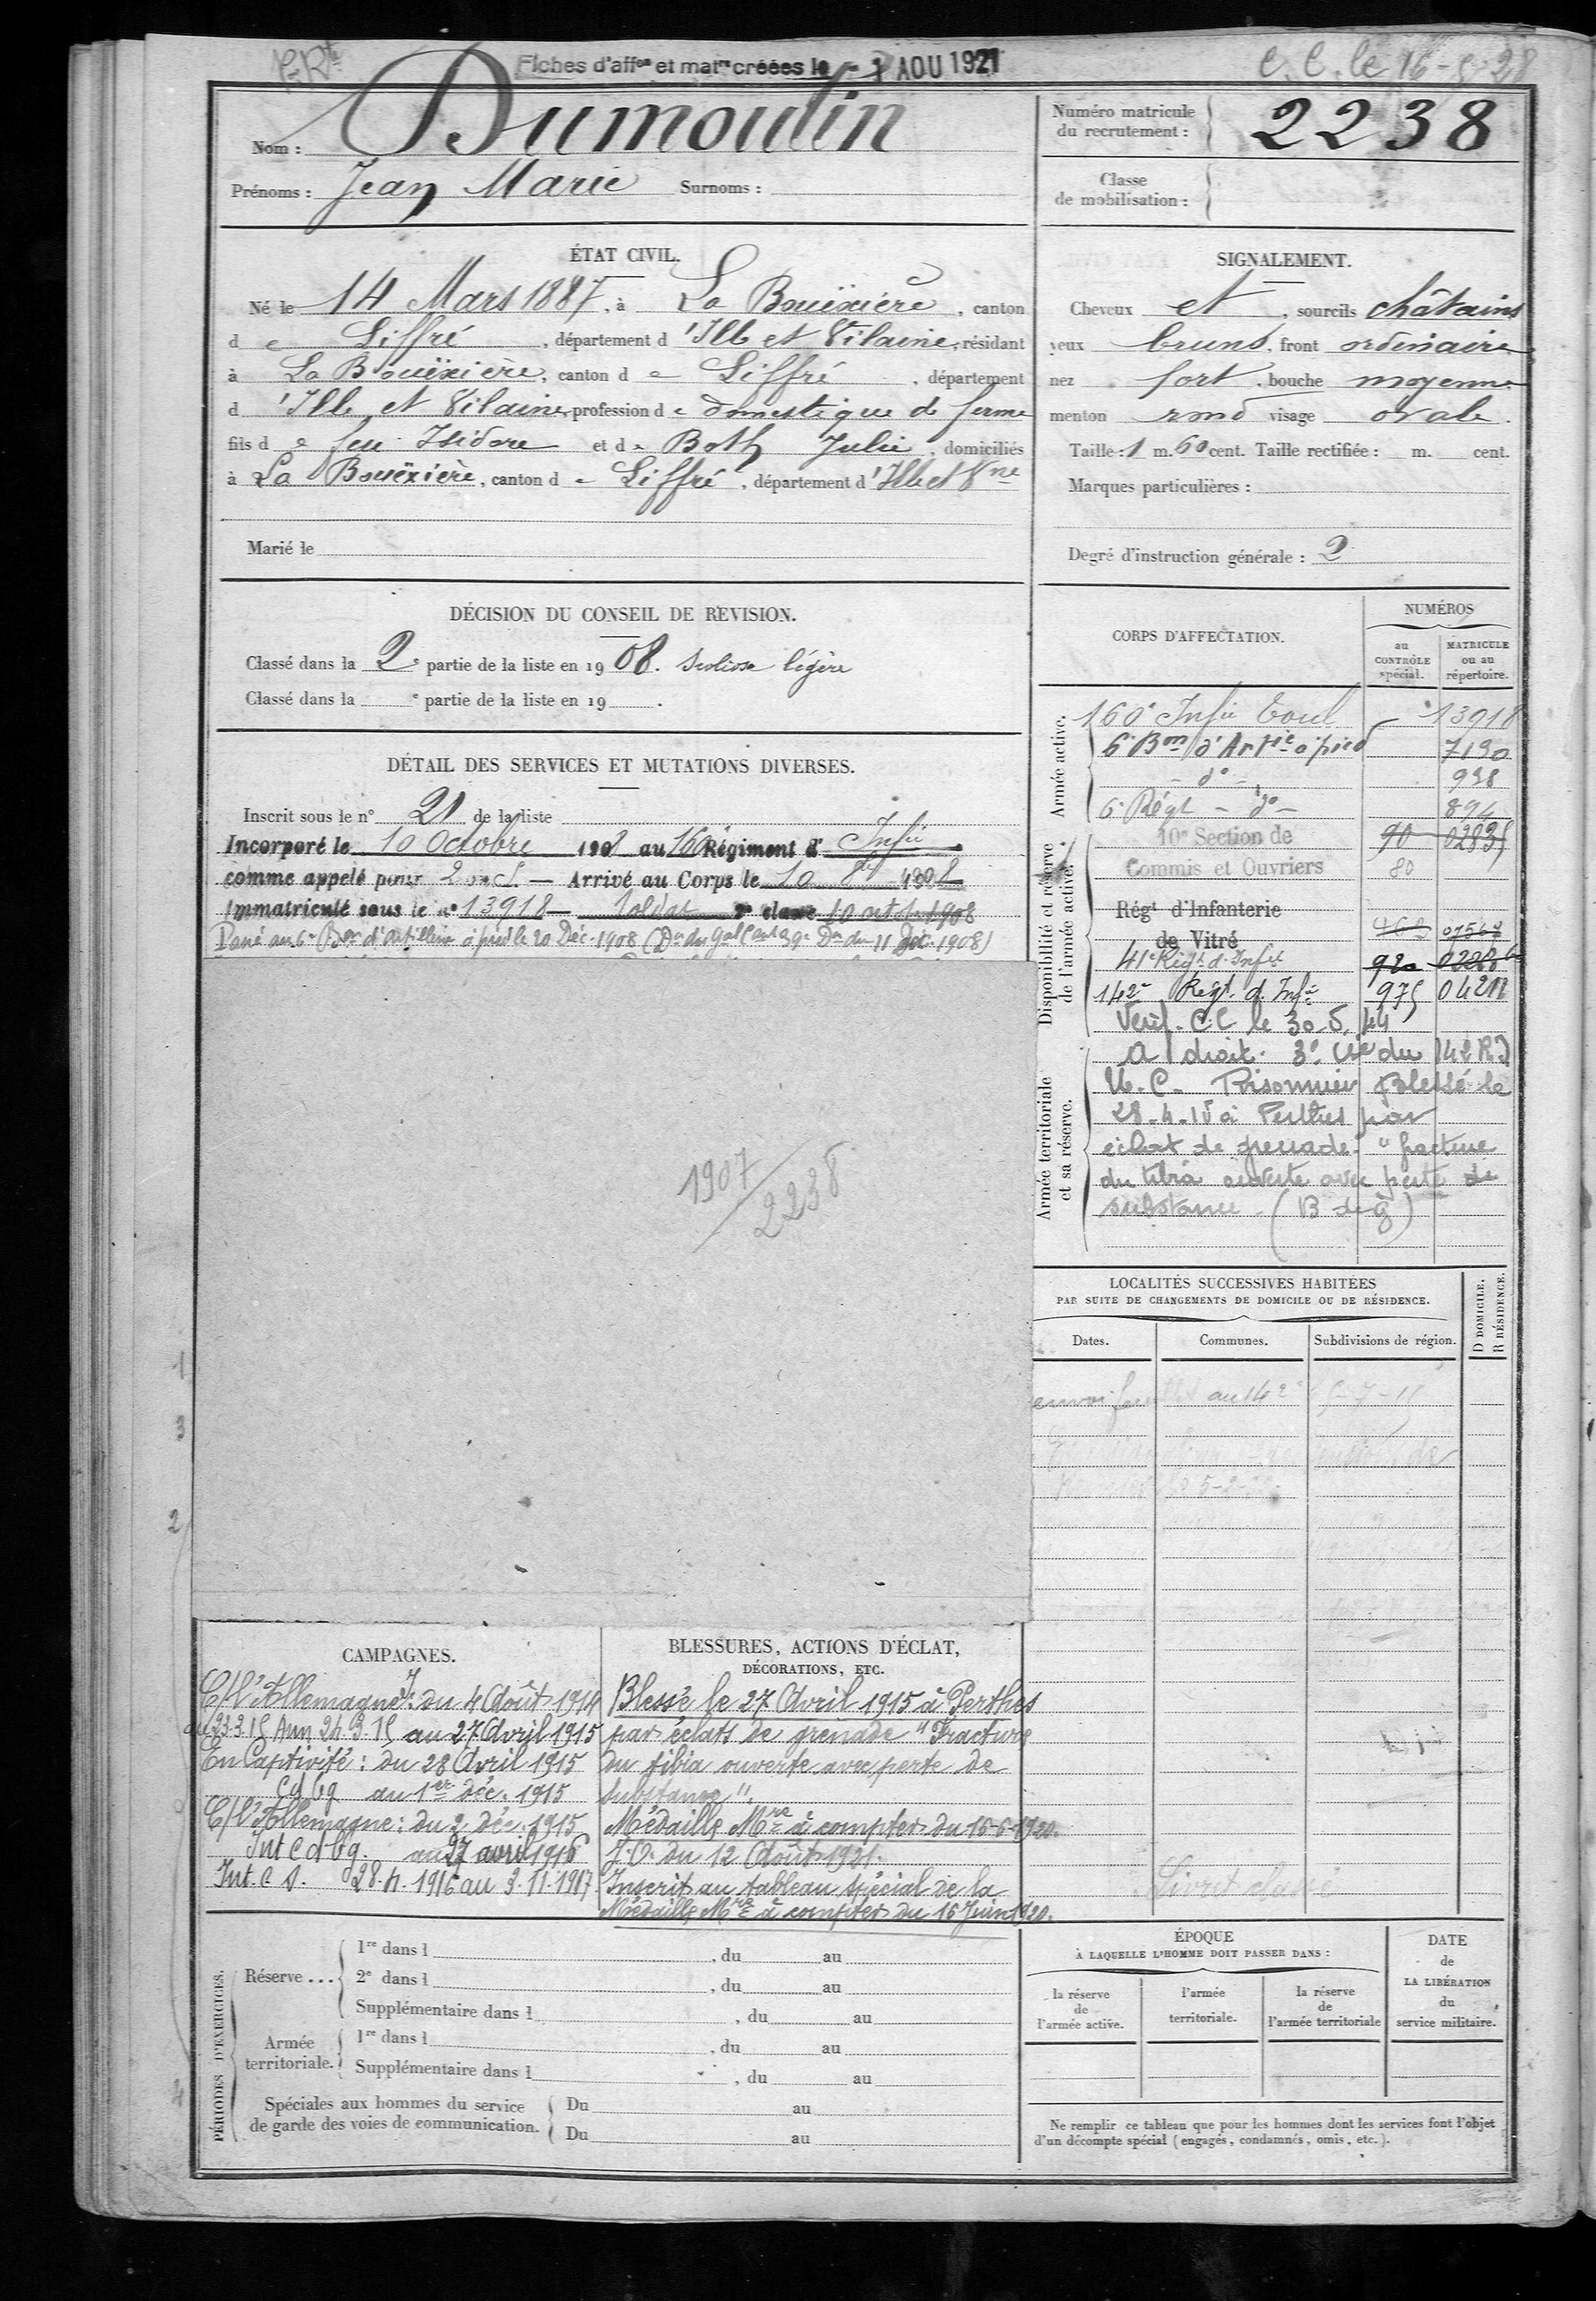 Fiches d'affon et matre créées le - 1 AOU 1921
C. C. le 16-5-28
Nom : Dumoulin
Prénoms : Jean Marie Surnoms :
Numéro matricule
du recrutement : 2238
Classe
de mobilisation :
ÉTAT CIVIL.
Né le 14 Mars 1887, à La Bouëxière, canton
de Liffré, département d'Ille et Vilaine, résidant
à La Bouëxière, canton de Liffré, département
d'Ille et Vilaine, profession de domestique de ferme
fils de feu Isidore et de Both Julie, domiciliés
à La Bouëxière, canton de Liffré, département d'Ille et Vne
Marié le
SIGNALEMENT.
Cheveux et, sourcils châtains
yeux bruns, front ordinaire
nez fort, bouche moyenne
menton rond visage ovale.
Taille : 1 m. 60 cent. Taille rectifiée : m. cent.
Marques particulières :
Degré d'instruction générale : 2
DÉCISION DU CONSEIL DE REVISION.
Classé dans la 2e partie de la liste en 1908. Scoliose légère
Classé dans la e partie de la liste en 19 .
DÉTAIL DES SERVICES ET MUTATIONS DIVERSES.
Inscrit sous le n° 21 de la liste
Incorporé le 10 Octobre 1908 au 160 Régiment d'Infie
comme appelé pour 2 ans. — Arrivé au Corps le 10 8bre 1908
Immatriculé sous le n° 13918 — Soldat 2e classe 10 octobre 1908
Passé au 6e Bon d'Artillerie à pied le 20 Déc. 1908 (Don du Gal Cent 39e Don du 11 Déc. 1908)
1907
2238
CORPS D'AFFECTATION.
NUMÉROS
au
CONTRÔLE
spécial.
MATRICULE
ou au
répertoire.
Armée active.
160e Infie Toul 13918
6e Bon d'Artie à pied 7190
- do - 938
6e Régt - do - 894
Disponibilité et réserve
de l'armée active.
10e Section de 90 02835
Commis et Ouvriers 80
Régt d'Infanterie
de Vitré 07567
41e Régt d'Infie 920
142e Regt d'Infie 975
Armée territoriale
et sa réserve.
Vérif. C.C le 30-5-44
A droit. 3e Cie du 142 R.I
U.C. Prisonnier Blessé le
28-4-15 à Perthes par
éclat de grenade "fracture
du tibia ouverte avec perte de
substance (B de g)
LOCALITÉS SUCCESSIVES HABITÉES
PAR SUITE DE CHANGEMENTS DE DOMICILE OU DE RÉSIDENCE.
Dates. Communes. Subdivisions de région.
D DOMICILE.
R RÉSIDENCE.
envoi au 142e
5-2-
Livret classé
CAMPAGNES.
C/l'Allemagne : I. du 4 Août 1914
au 23.3.15 Aux 24.3.15 au 27 Avril 1915
En Captivité : du 28 Avril 1915
cdbg au 1er déc. 1915
C/l'Allemagne : du 2 déc. 1915
Int cdbg. au 27 avril 1916
Int. C S. 28.4.1916 au 3.11.1917.
BLESSURES, ACTIONS D'ÉCLAT,
DÉCORATIONS, ETC.
Blessé le 27 Avril 1915 à Perthes
par éclats de grenade "Fracture
du tibia ouverte avec perte de
substance".
Médaille Mre à compter du 16-6-1920.
J.O. du 12 Août 1921.
Inscrit au tableau spécial de la
Médaille Mre à compter du 16 Juin 1920.
PÉRIODES D'EXERCICES.
Réserve ...
1re dans l , du au
2e dans l , du au
Supplémentaire dans l , du au
Armée
territoriale.
1re dans l , du au
Supplémentaire dans l , du au
Spéciales aux hommes du service
de garde des voies de communication.
Du au
Du au
ÉPOQUE
À LAQUELLE L'HOMME DOIT PASSER DANS :
la réserve
de
l'armée active.
l'armée
territoriale.
la réserve
de
l'armée territoriale
DATE
de
LA LIBÉRATION
du
service militaire.
Ne remplir ce tableau que pour les hommes dont les services font l'objet
d'un décompte spécial (engagés, condamnés, omis, etc.).